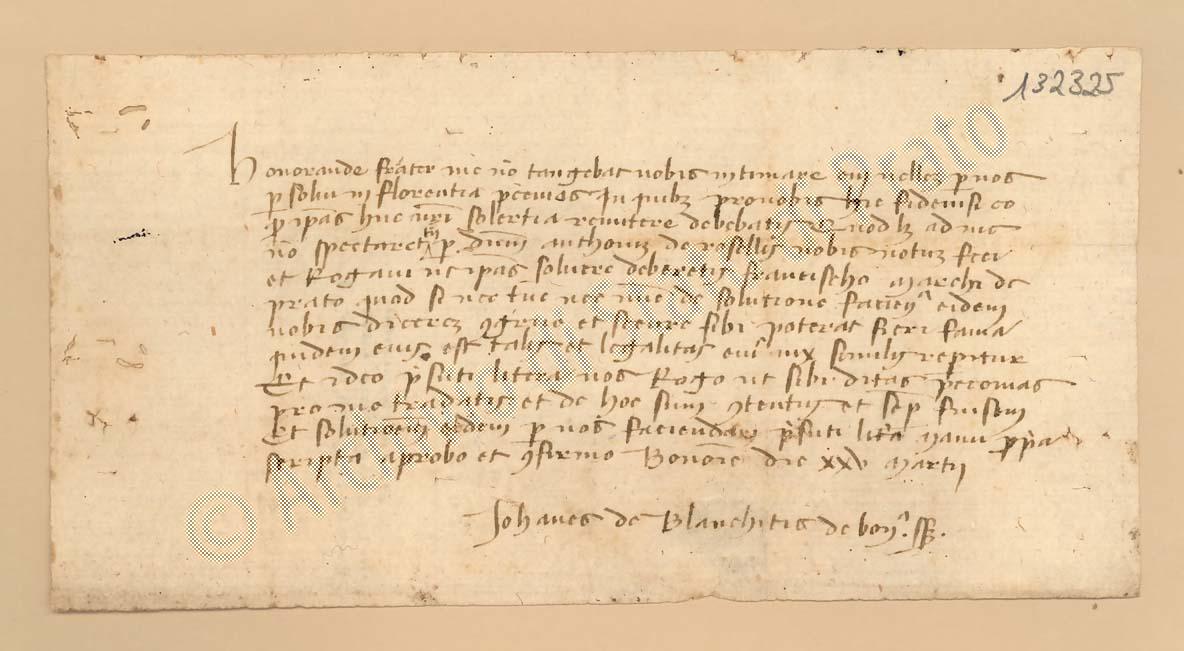 132325
Honorande frater me nō tangebat nobis intimare cui vellez p nos
p solui in florentia pccuiēs In quibz pro nobis hic fideiussi
p ipas huc solertia remittere debebatis Quod lz ad me
nō spectaret p. dnm anthoniuz de rosellis nobis notuz feci
et Rogaui ut ipas soluere deberetis francischo Marchi de
prato quod si nec tūc nec nūc de solutione eidem
nobis dicerez 9grue et secure sibi poterat fieri fama
quidem eius est talis et legalitas similis repitur
Et ideo litera uos Rogo ut sibi ditas pecunias
pro me tradatis et de hoc sum 9tentus et
Et solutionem eidem p nos faciendam litā Manu ppa
scripta aprobo et 9firmo Bononie die xxv Martij
Johanes de Blanchitis de bon
© Archivio di Stato di Prato